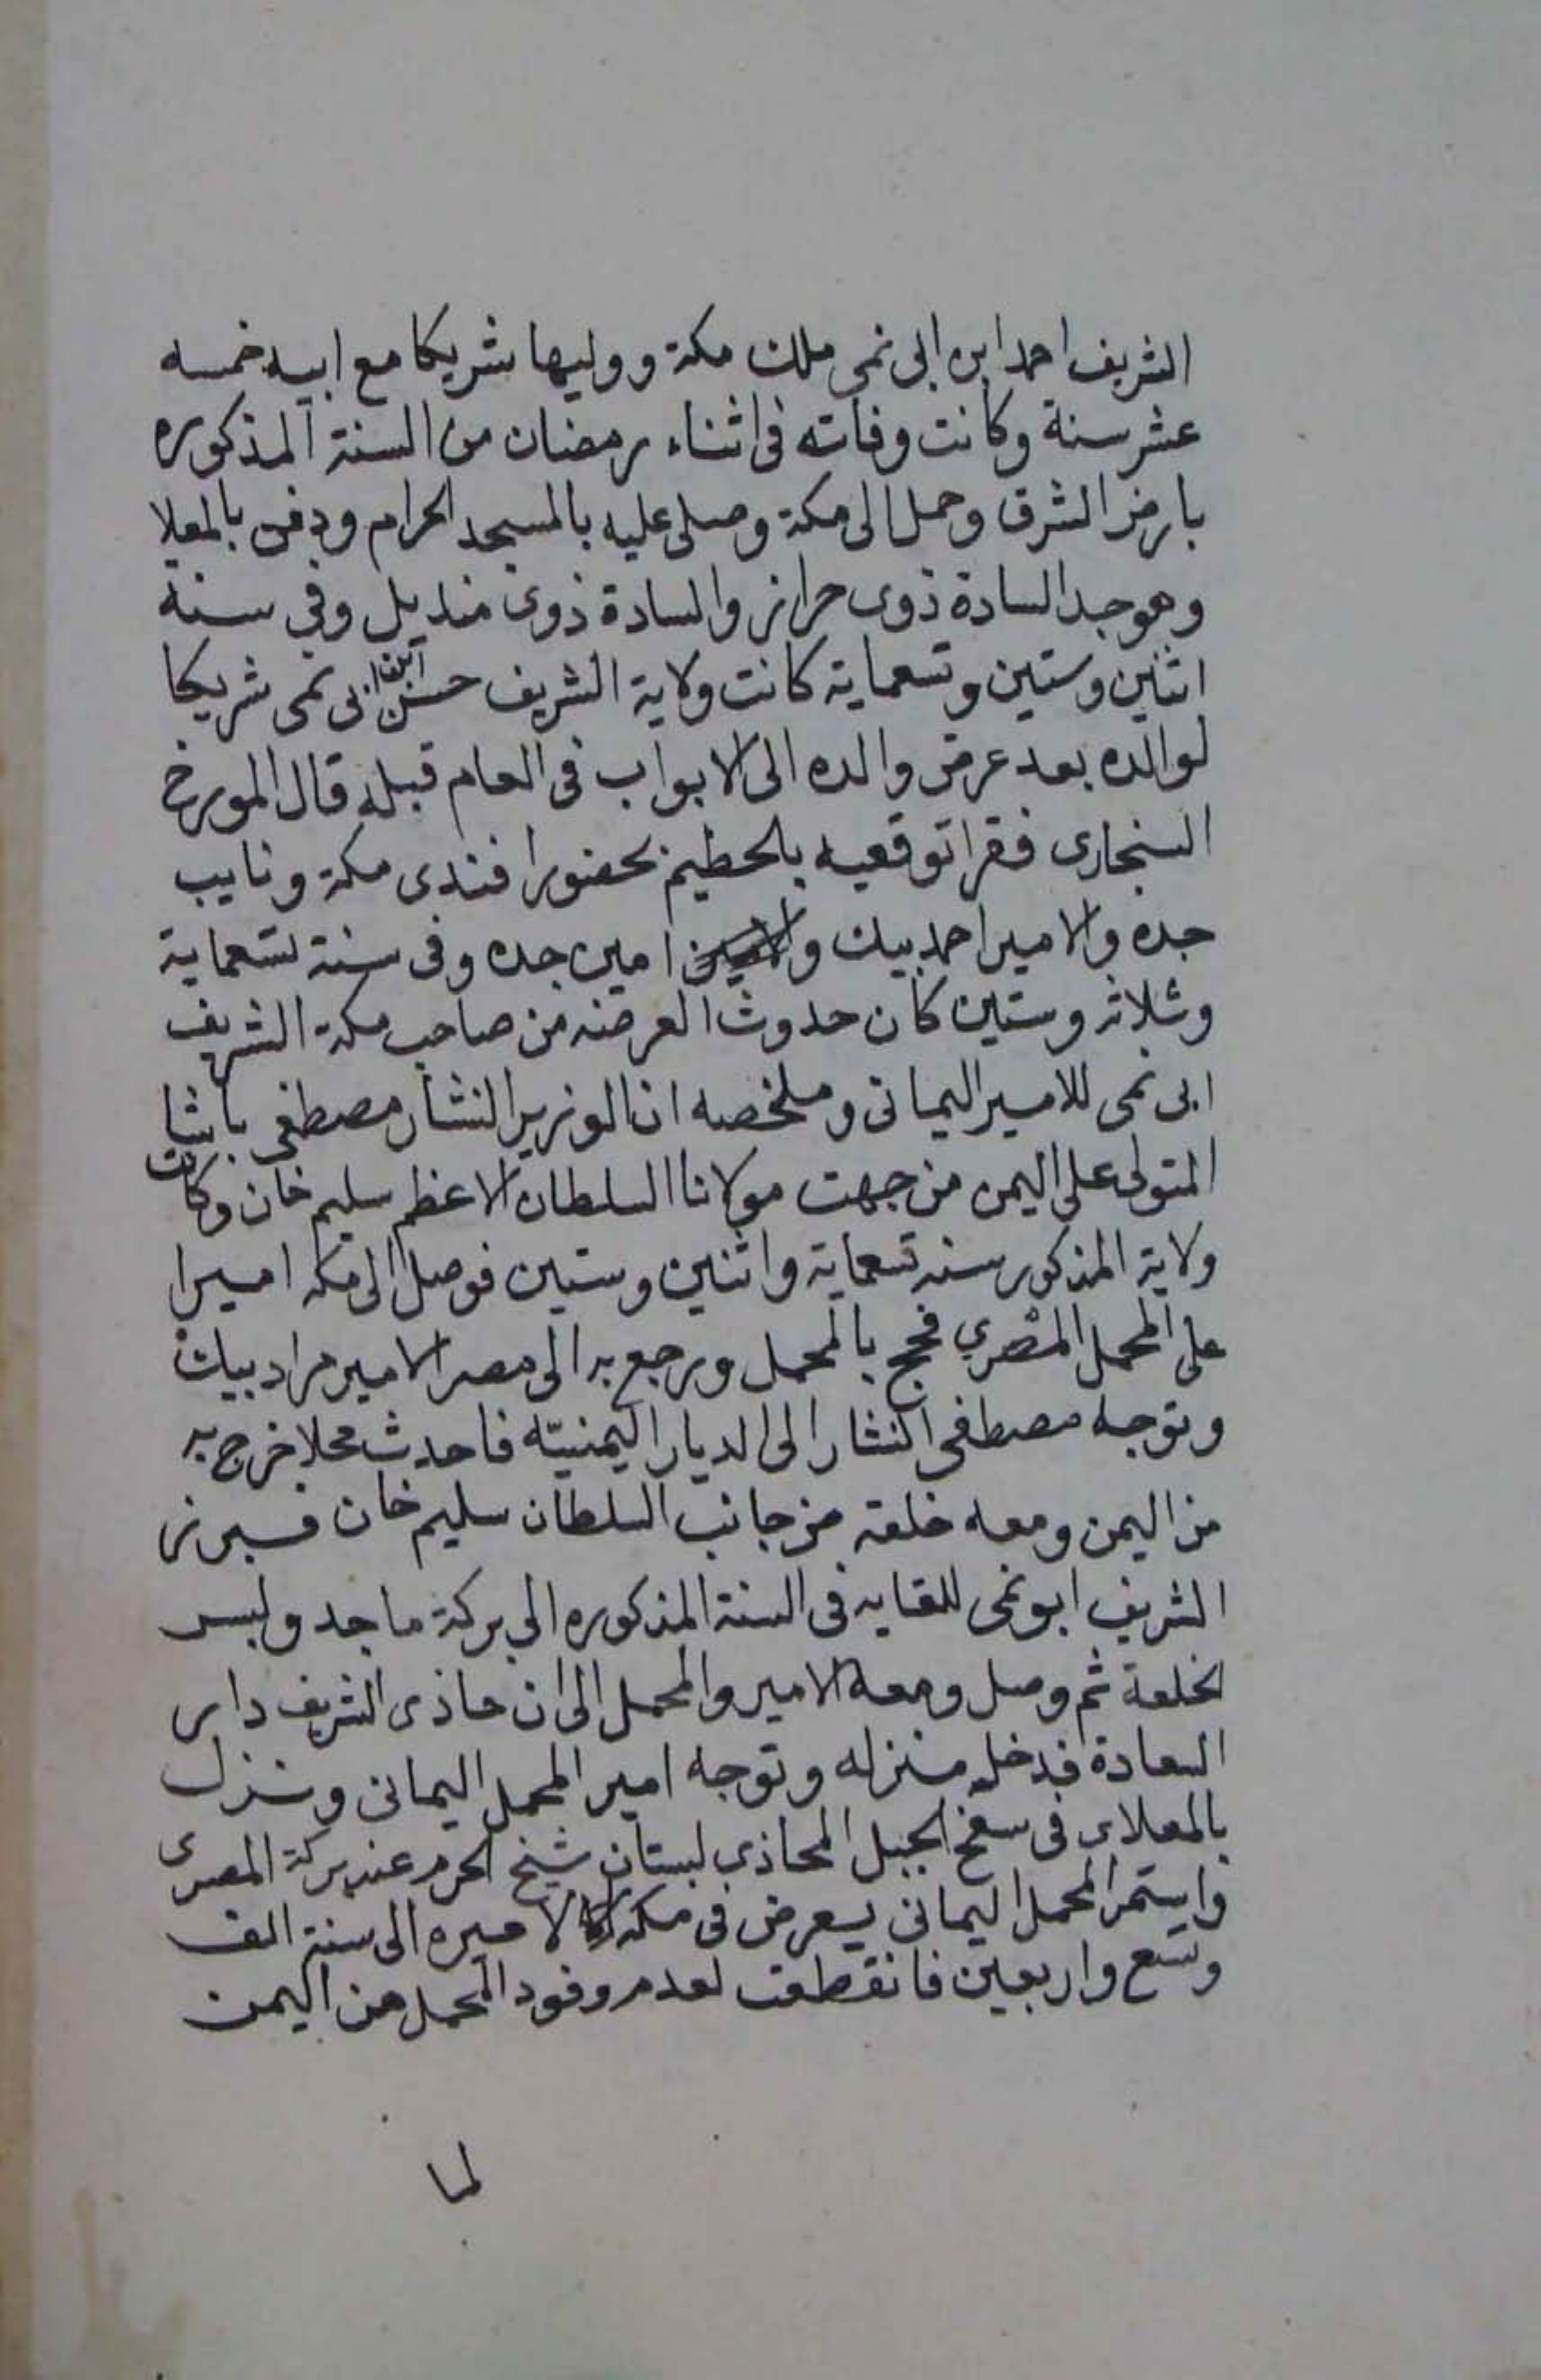 الشريف احمد ابن ابى نمى ملك مكة ووليها شريكا مع ابيه خمسه
عشر سنة وكانت وفاته فى اثناء رمضان من السنة المذكوره
بارض الشرق وحمل الى مكة وصلى عليه بالمسجد الحرام ودفن بالمعلا
وهو جد السادة ذوى حراز والسادة ذوى منديل وفي سنة
اثنين وستين وتسعماية كانت ولاية الشريف حسن ابن ابى نمى شريكا
لوالده بعد عرض والده الى الابواب فى العام قبله قال المورخ
السنجارى فقرا توقعيه بالحطيم بحضور افندى مكة ونايب
جده والامير احمد بيك و امين جده وفى سنة تسعماية
وثلاثه وستين كان حدوث العرضه من صاحب مكة الشريف
ابى نمى للامير اليمانى وملخصه ان الوزير النشار مصطفى باشا
المتولى على اليمن من جهت مولانا السلطان الاعظم سليم خان وكانت
ولاية المذكور سنه تسعماية واثنين وستين فوصل الى مكه اميرا
على المحمل المصري فحج بالمحمل ورجع به الى مصر الامير مراد بيك
وتوجه مصطفى النشار الى الديار اليمنيّه فاحدث محملا خرج به
من اليمن ومعه خلعة من جانب السلطان سليم خان فبرز
الشريف ابو نمى للقايه فى السنة المذكوره الي بركة ماجد ولبس
الخلعة ثم وصل ومعه الامير والمحمل الى ان حاذى الشريف دار
السعادة فدخل منزله وتوجه امير المحمل اليمانى ونزل
بالمعلاى فى سفح الجبل المحاذي لبستان شيخ الحرم عند بركة المصرى
واستمر المحمل اليمانى يعرض فى مكة لاميره الى سنة الف
وتسع واربعين فانقطعت لعدم وفود المحمل من اليمن
لما